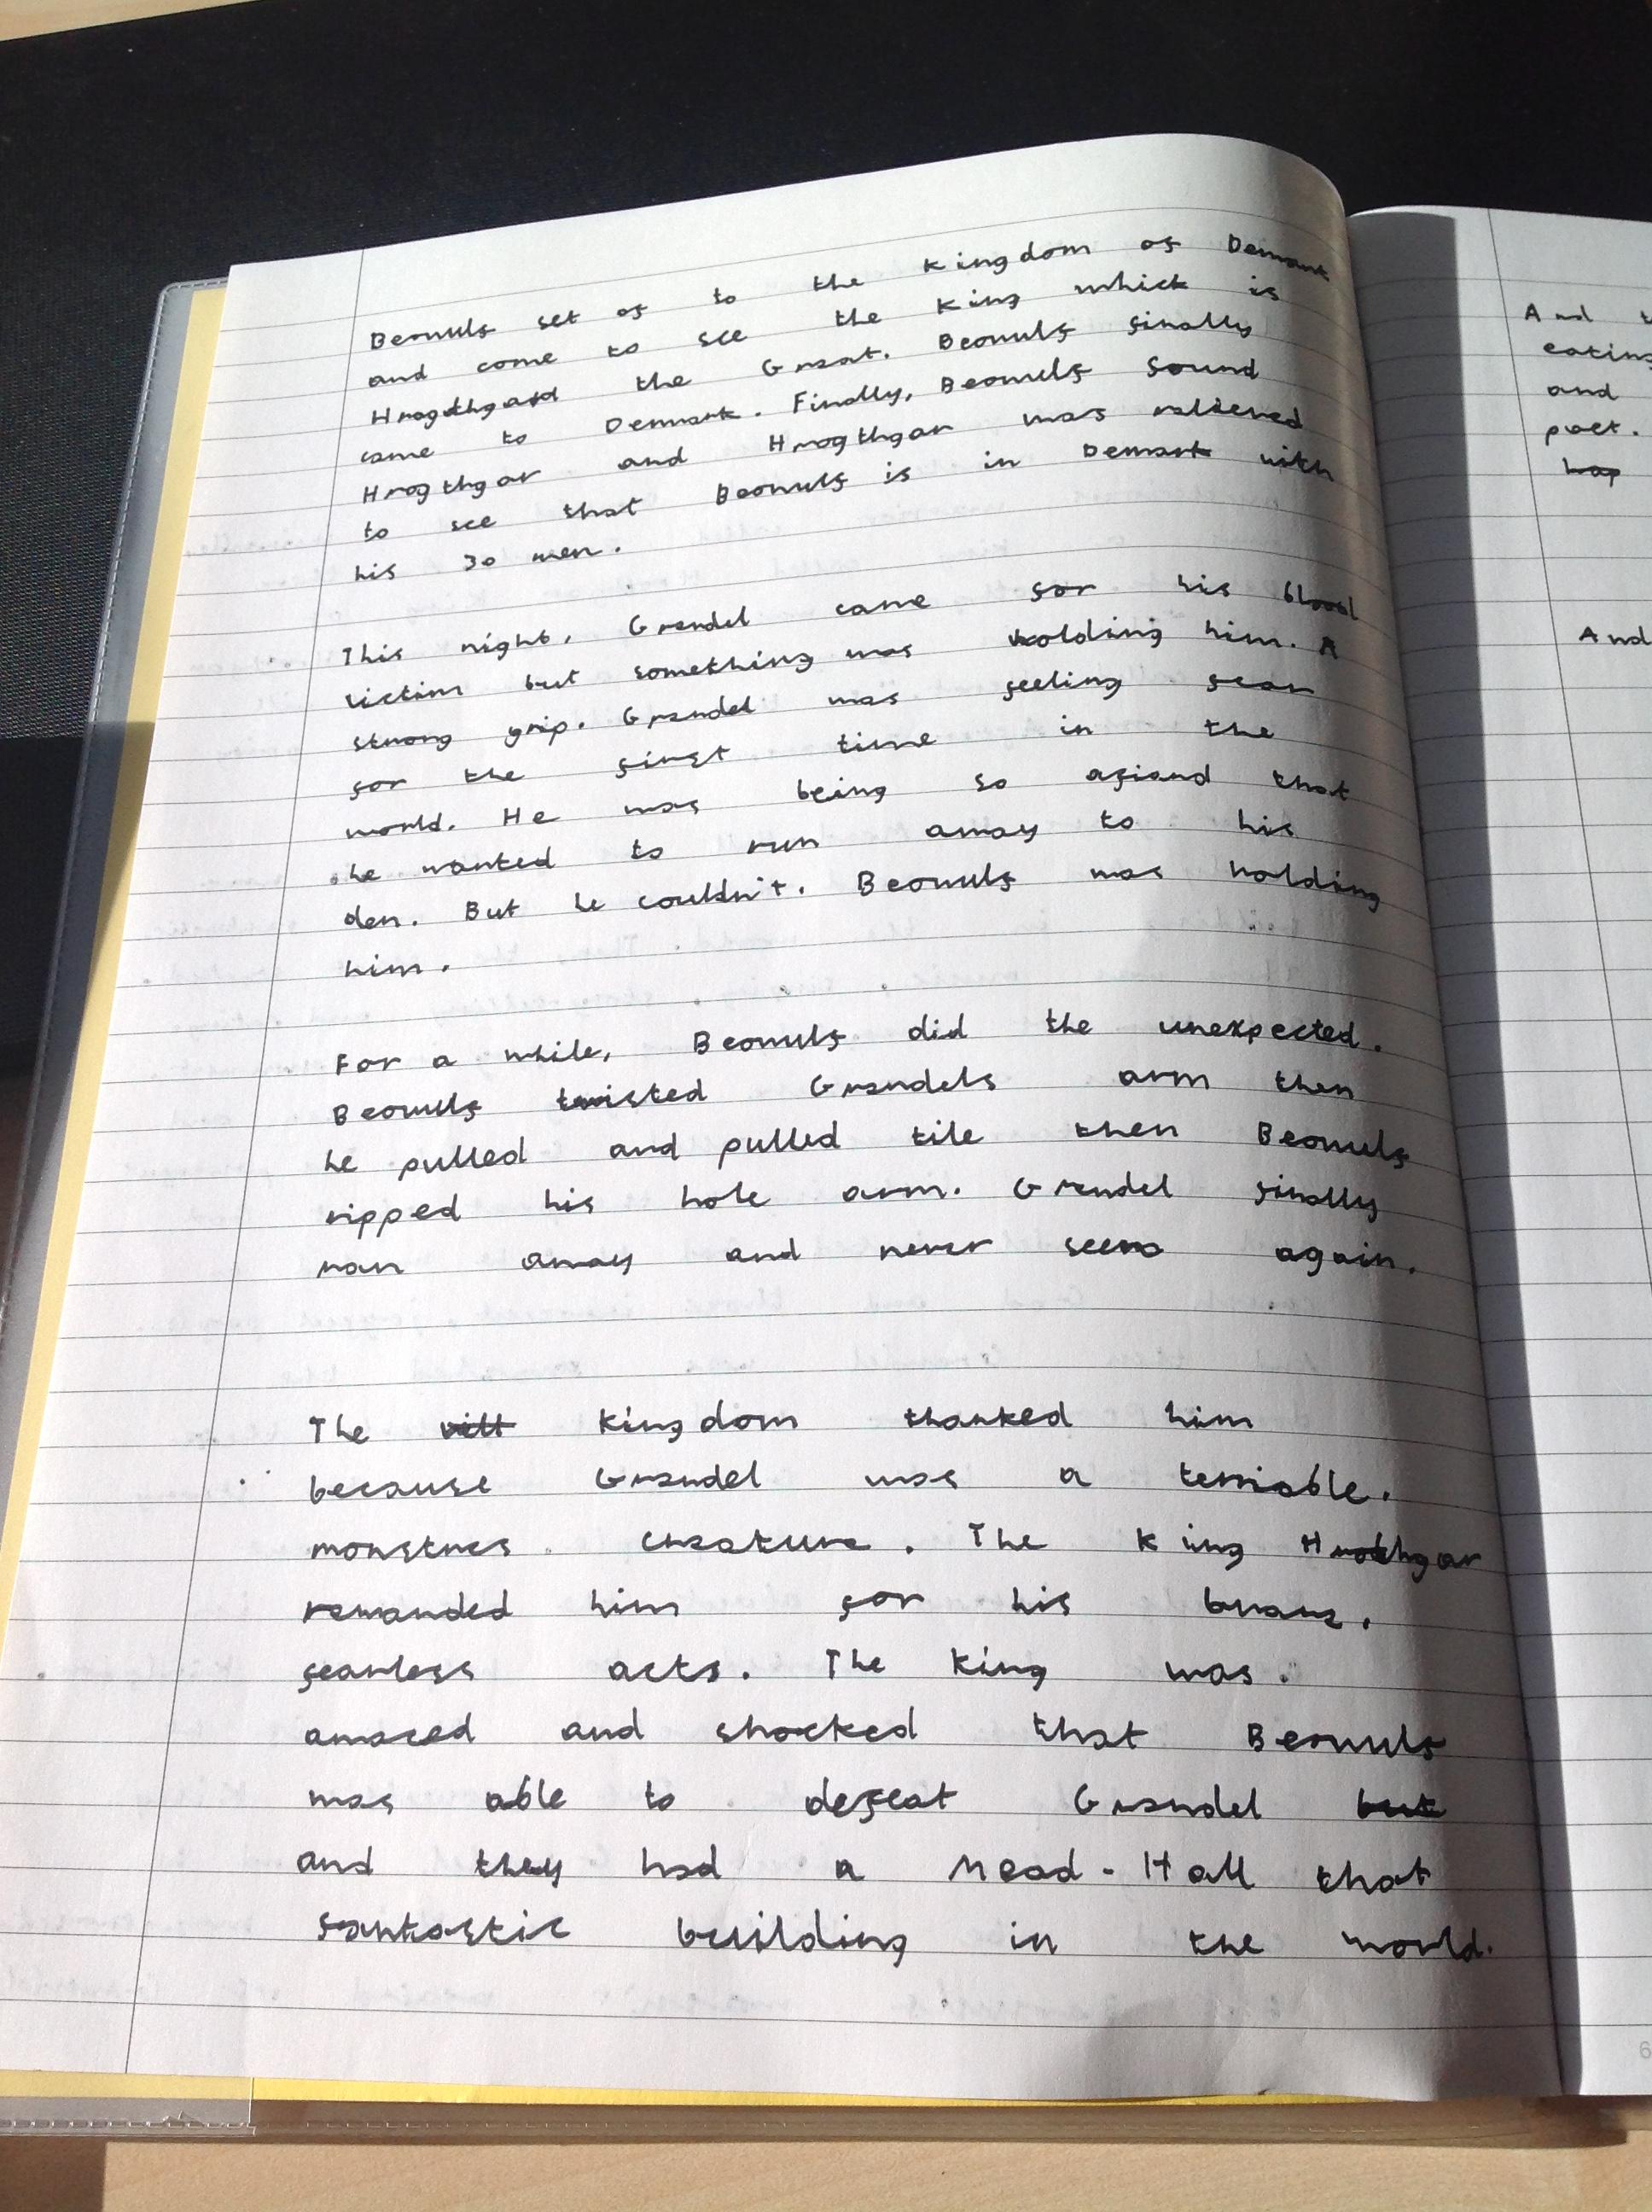 Beowulf set of to the Kingdom of Demark
and come to see the King which is
Hrogthgard the Great. Beowulf finally
came to Denmark. Finally, Beowulf found
Hrogthgar and Hrogthgar was relieved
to see that Beowulf is in Demark with
his 30 men.
This night, Grendel came for his blood
victim but something was holding him. A
strong grip. Grendel was feeling fear
for the first time in the
world. He was being so afiard that
he wanted to run away to his
den. But he couldn't. Beowulf was holding
him.
For a while, Beowulf did the unexpected.
Beowulf twisted Grendels arm then
he pulled and pulled tile then Beowulf
ripped his hole arm. Grendel finally
ran away and never seen again.
The vill Kingdom thanked him
because Grendel was a terriable.
monstres creature. The King Hrothgar
rewarded him for his brave,
fearless acts. The King was.
amazed and shocked that Beowulf
was able to defeat Grendel but
and they had a Mead-Hall that
fantastic building in the world.
And
eating
and
poet.
hap
And
6